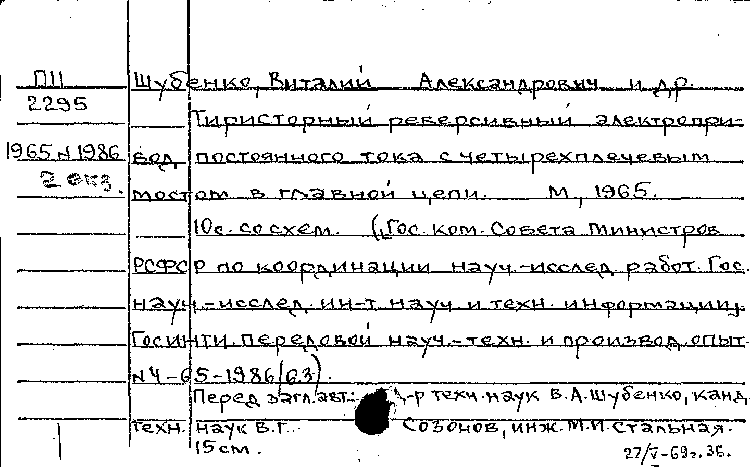 П11
2295
1965 N 1986
2 экз.
Шубенко, Виталий Александрович и др.
Тиристорный реверсивный электропри-
вод постоянного тока с четырехплечевым
мостом в главной цепи. М., 1965.
10 с. со схем. (Гос. ком. Совета Министров
РСФСР по координации науч.-исслед. работ. Гос.
науч.-исслед. ин-т науч. и техн. информации,
ГОСИНТИ. Передовой науч.-техн. и производ. опыт
N 4-65-1986/63).
Перед загл. авт.: Д-р техн. наук В.А. Шубенко, канд.
техн. наук В.Г. Созонов, инж. М.И. Стальная.
15 см.
27/V-69г. ЗБ.